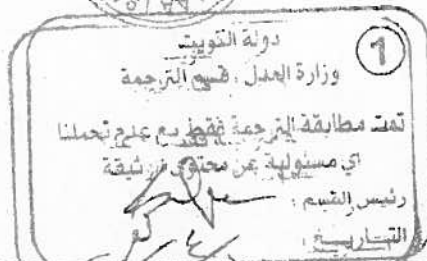 دولة الكويت
1
وزارة العدل . قسم الترجمة
تمت مطابقة الترجمة فقط مع عدم تحملنا
اي مسئولية عن محتوى
رئيس القسم :
التاريخ :